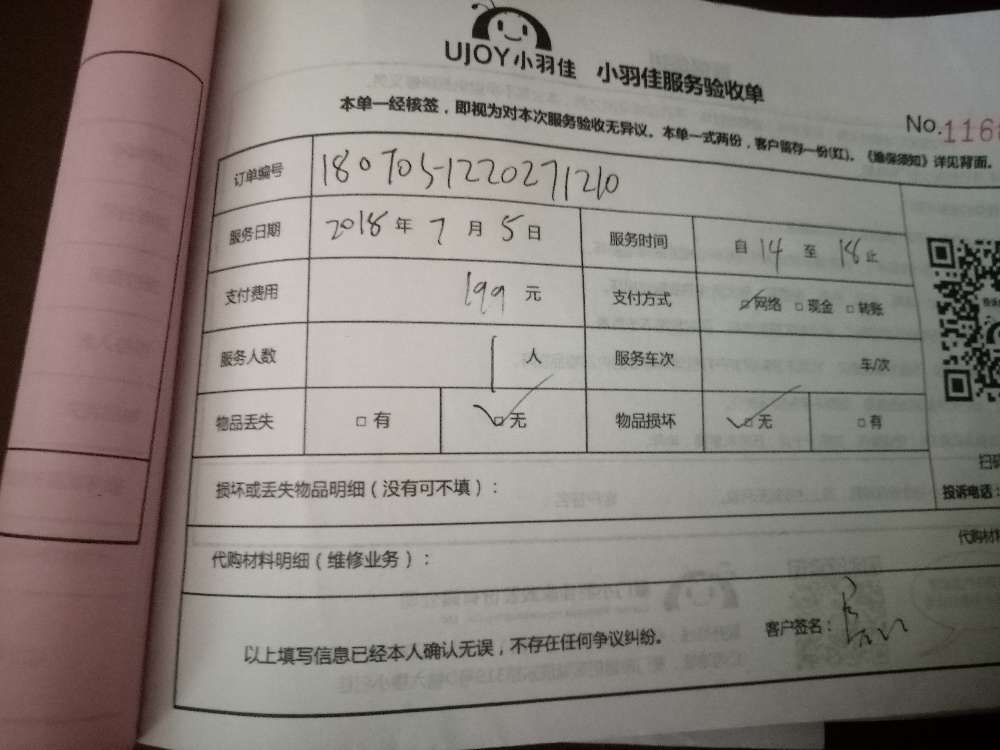 UJOY小羽佳 小羽佳服务验收单
No.116
本单一经核签，即视为对本次服务验收无异议。本单一式两份，客户留存一份(红)。《维保须知》详见背面。
订单编号 180705-1220271210
服务日期 2018年7月5日 服务时间 自14至18止
支付费用 199元 支付方式 ☑网络 □现金 □转账
服务人数 1人 服务车次 车/次
物品丢失 □有 ☑无 物品损坏 ☑无 □有
损坏或丢失物品明细（没有可不填）：
投诉电话：
代购材料明细（维修业务）：
代购材料
以上填写信息已经本人确认无误，不存在任何争议纠纷。
客户签名：